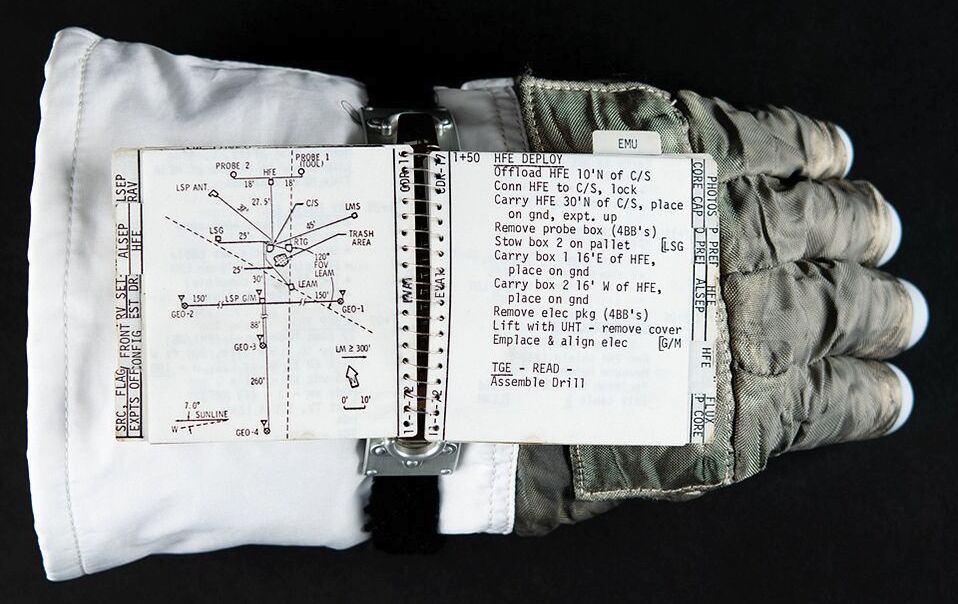 PROBE 2
PROBE 1
(TOOL)
HFE
18' 18'
LSP ANT.
27.5'
C/S
LMS
45'
LSG
25'
RTG
TRASH
AREA
120°
FOV
LEAM
25'
30'
LEAM
150' LSP G/M 150'
GEO-2
GEO-1
88'
GEO-3
LM ≥ 300'
260'
0' 10'
7.0°
SUNLINE
W
GEO-4
SRC, FLAG, FRONT
EXPTS OFF
ALSEP
HFE
ALSEP
RAV
EMU
1+50 HFE DEPLOY
Offload HFE 10'N of C/S
Conn HFE to C/S, lock
Carry HFE 30'N of C/S, place
on gnd, expt. up
Remove probe box (4BB's)
Stow box 2 on pallet [LSG
Carry box 1 16'E of HFE,
place on gnd
Carry box 2 16' W of HFE,
place on gnd
Remove elec pkg (4BB's)
Lift with UHT - remove cover
Emplace & align elec [G/M
TGE - READ -
Assemble Drill
PHOTOS
CORE CAP
HFE
ALSEP
HFE
FLUX
P CORE